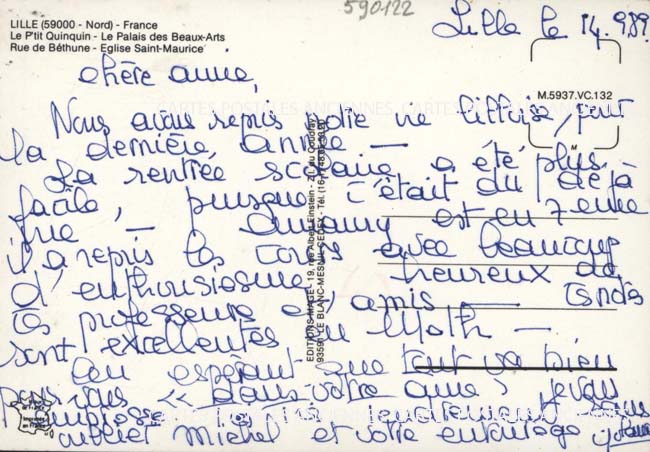 590122
LILLE (59000 - Nord) - France
Le P'tit Quinquin - Le Palais des Beaux-Arts
Rue de Béthune - Eglise Saint-Maurice
Lille le 14.9.89
chère amie,
M.5937.VC.132
Nous avons repris notre vie lilloise, pour
la dernière année —
La rentrée scolaire a été plus
facile, puisque c'était du déjà
vue — Amaury est en 7ème
il a repris les cours avec beaucoup
d'enthousiasme, heureux de
ses professeurs et amis —
sont excellentes en Math —
En espérant que tout va bien
pour vous "dans votre âme", je vous
embrasse sans
oublier Michel et votre entourage
EDITIONS MAGE - 19, rue Albert Einstein - Z.I. du Coudray
93590 LE BLANC-MESNIL CEDEX - Tél.
CARTES POSTALES ANCIENNES